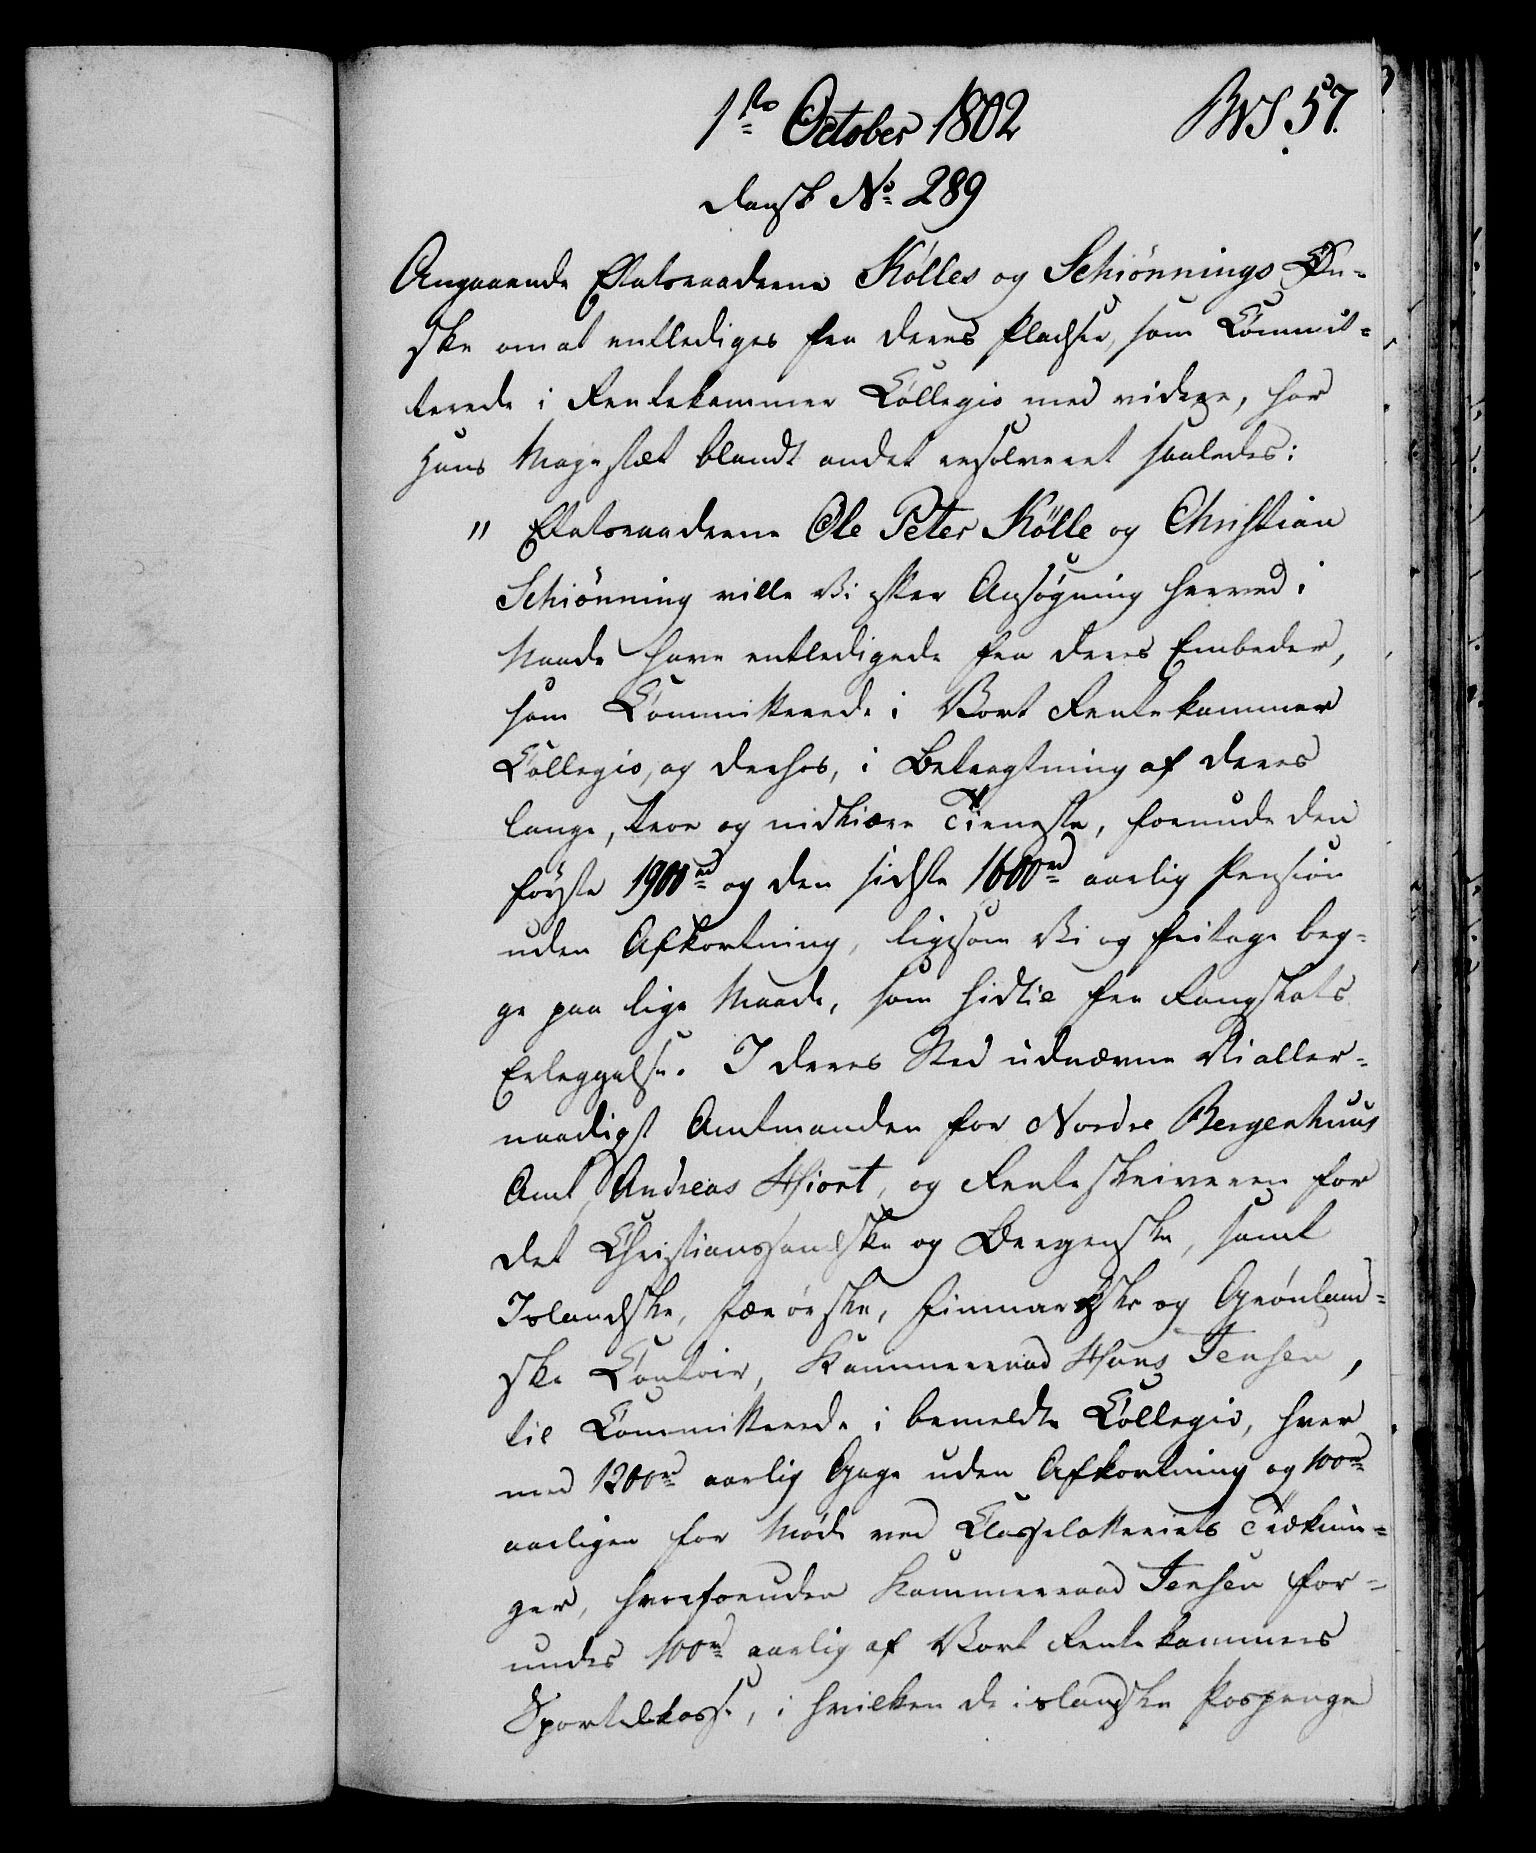 1ste October 1802
57.
dansk No 289
Angaaende Etatsraaderne Kölles og Schiönnings Øn-
ske om at entlediges fra deres Pladser, som Commit-
terede i Rentekammer Collegio med videre, har
Hans Majestæt blandt andet resolveret saaledes:
" Etatsraaderne Ole Peter Kölle og Christian
Schiönning ville Vi efter Ansøgning herved i
Naade have entledigede fra deres Embeder,
som Committerede i Vort Rentekammer
Collegio, og derhos, i Betragtning af deres
lange, troe og nidkiere Tieneste, forunde den
første 1900rd og den sidste 1600rd aarlig Pension
uden Afkortning, ligesom Vi og fritage beg-
ge paa lige Maade, som hidtil fra Rangskats
Erleggelse. I deres Sted udnævne Vi aller-
naadigst Amtmanden for Nordre Bergenhuus
Amt Andreas Hiort, og Renteskriveren for
det Christianssandske og Bergenske, samt
Islandske, færøeske, finmarkske og Grønland-
ske Contoir, Kammerraad Hans Jensen,
til Committerede i bemeldte Collegio, hver
med 1200rd aarlig Gage uden Afkortning og 100rd
aarligen for Møde ved Classelotteriets Træknin-
ger, hvorforuden Kammerraad Jensen for-
undes 100rd aarlig af Vort Rentekammers
Sportelkasse, i hvilken de islandske Paspenge